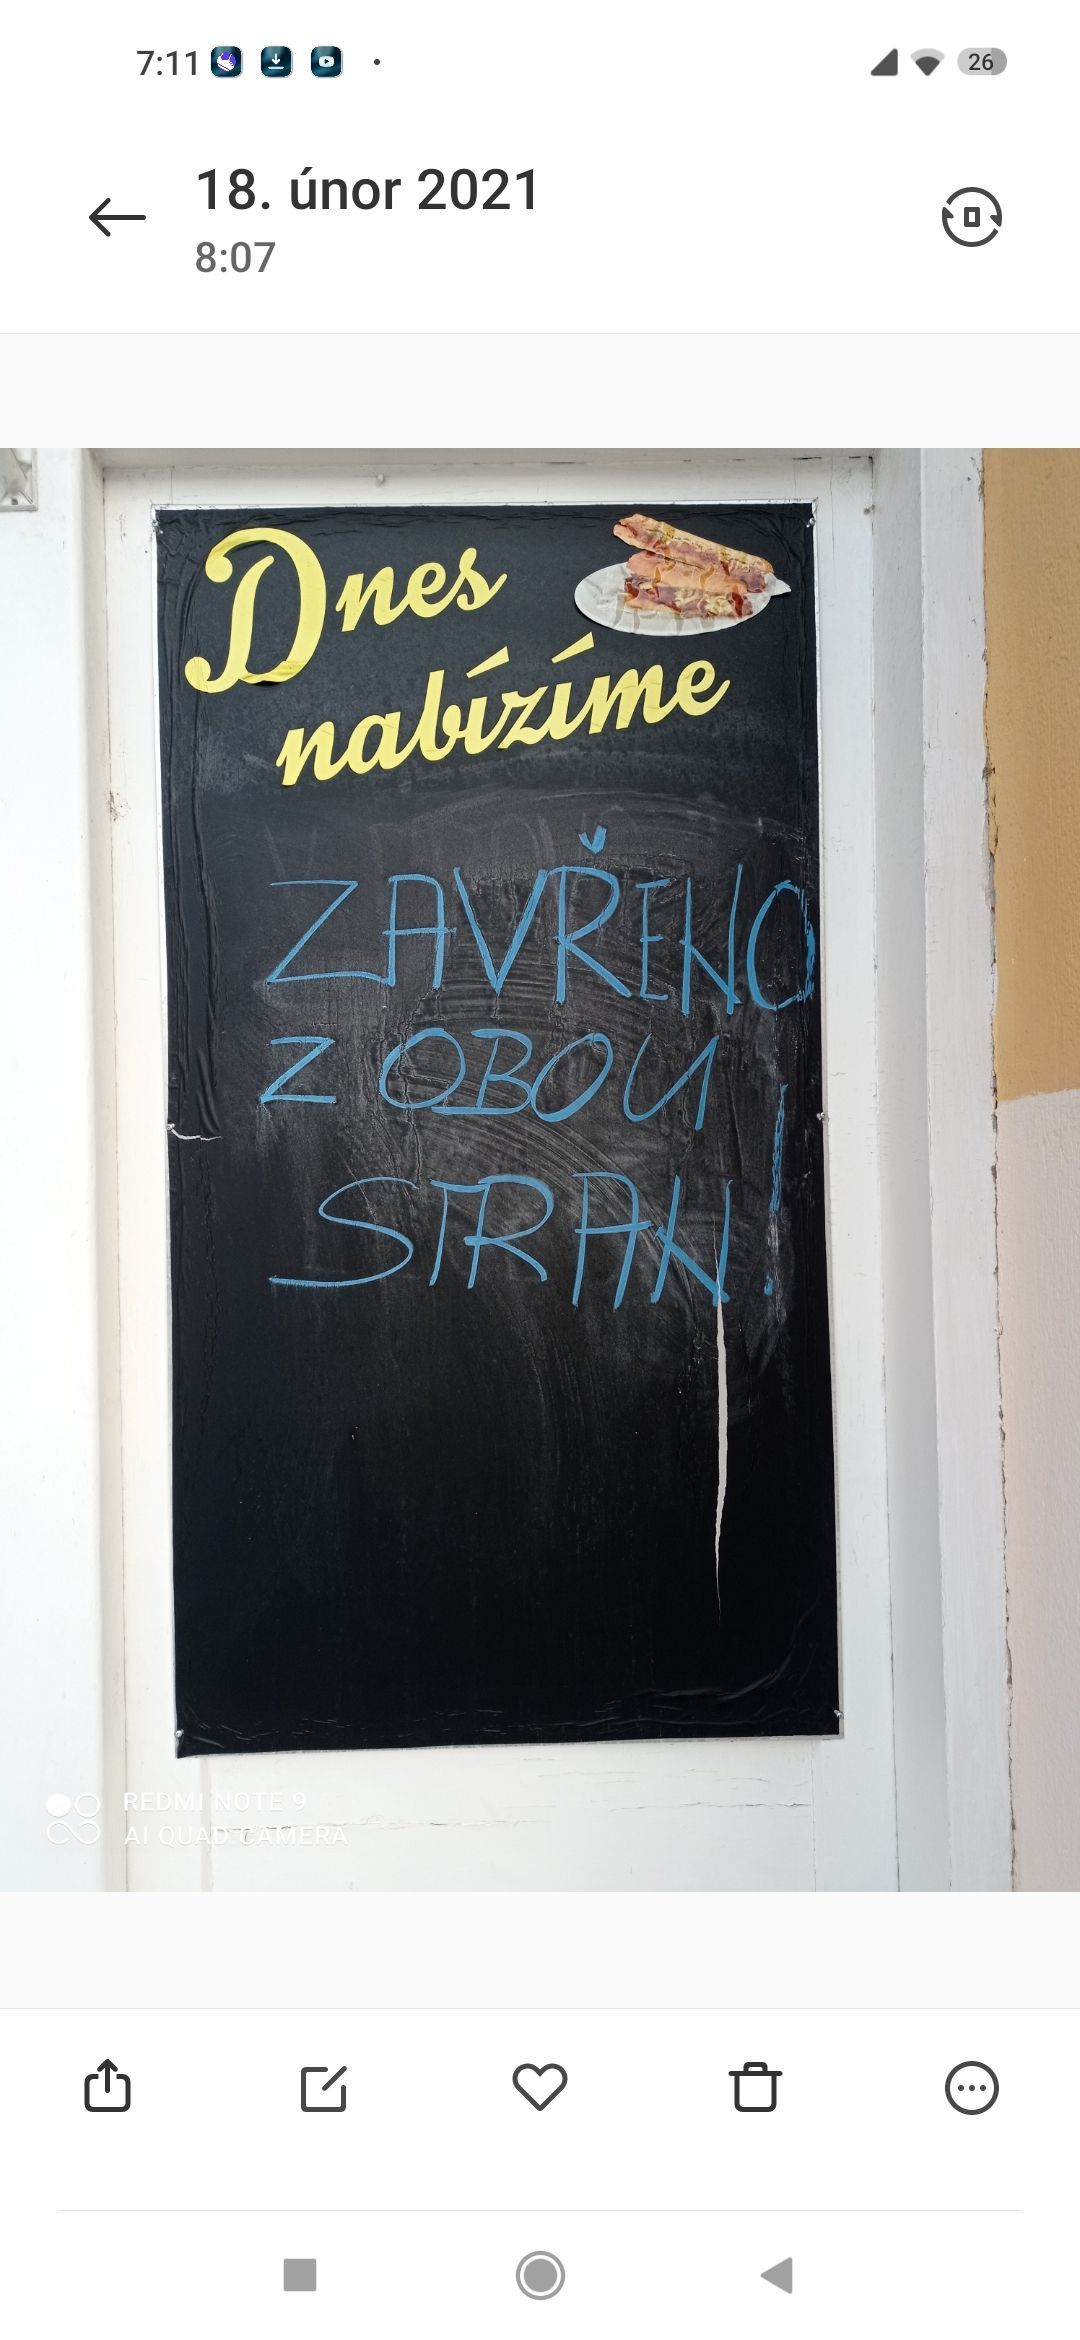 7:11
26
18. únor 2021
8:07
Dnes
nabízíme
ZAVŘENO
Z OBOU
STRAN!
REDMI NOTE 9
AI QUAD CAMERA